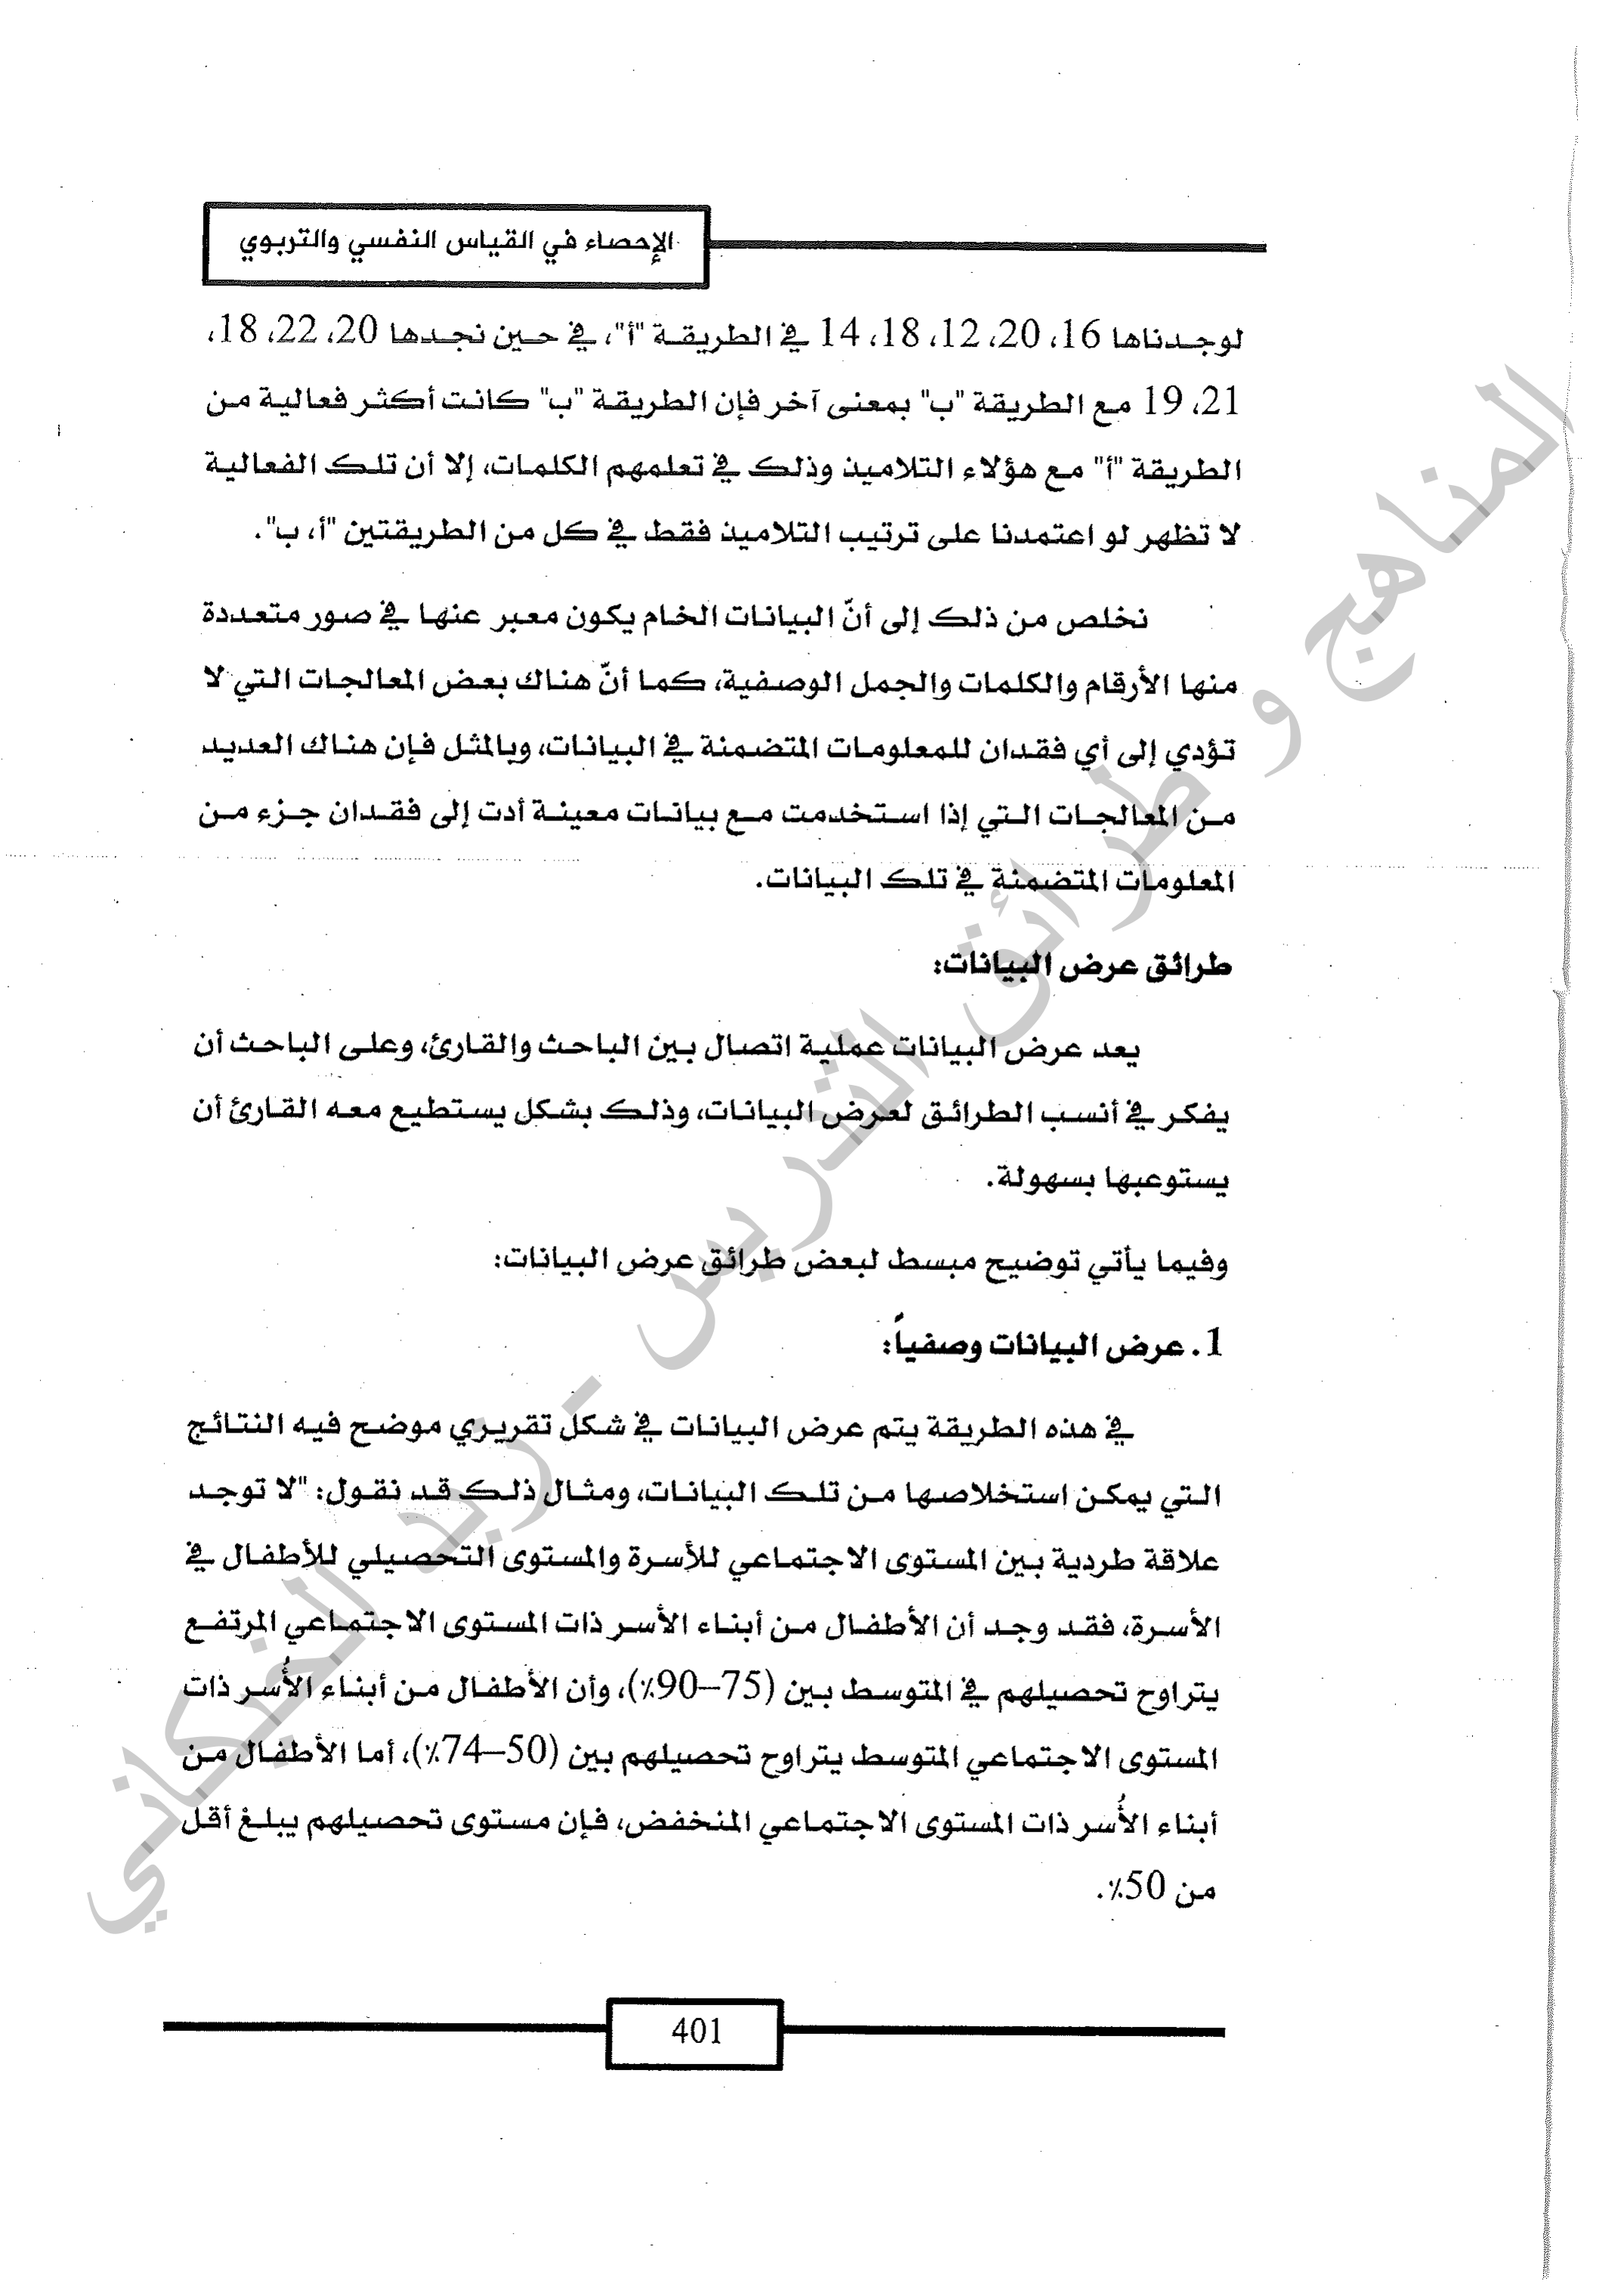 الإحصاء في القياس النفسي والتربوي
لوجدناها 16، 20، 12، 18، 14 في الطريقة "أ"، في حين نجدها 20، 22، 18،
21، 19 مع الطريقة "ب" بمعنى آخر فإن الطريقة "ب" كانت أكثر فعالية من
الطريقة "أ" مع هؤلاء التلاميذ وذلك في تعلمهم الكلمات، إلا أن تلك الفعالية
لا تظهر لو اعتمدنا على ترتيب التلاميذ فقط في كل من الطريقتين "أ، ب".
نخلص من ذلك إلى أنّ البيانات الخام يكون معبر عنها في صور متعددة
منها الأرقام والكلمات والجمل الوصفية، كما أنّ هناك بعض المعالجات التي لا
تؤدي إلى أي فقدان للمعلومات المتضمنة في البيانات، وبالمثل فإن هناك العديد
من المعالجات التي إذا استخدمت مع بيانات معينة أدت إلى فقدان جزء من
المعلومات المتضمنة في تلك البيانات.
طرائق عرض البيانات:
يعد عرض البيانات عملية اتصال بين الباحث والقارئ، وعلى الباحث أن
يفكر في أنسب الطرائق لعرض البيانات، وذلك بشكل يستطيع معه القارئ أن
يستوعبها بسهولة.
وفيما يأتي توضيح مبسط لبعض طرائق عرض البيانات:
1. عرض البيانات وصفياً:
في هذه الطريقة يتم عرض البيانات في شكل تقريري موضح فيه النتائج
التي يمكن استخلاصها من تلك البيانات، ومثال ذلك قد نقول: "لا توجد
علاقة طردية بين المستوى الاجتماعي للأسرة والمستوى التحصيلي للأطفال في
الأسرة، فقد وجد أن الأطفال من أبناء الأسر ذات المستوى الاجتماعي المرتفع
يتراوح تحصيلهم في المتوسط بين (75–90٪)، وأن الأطفال من أبناء الأُسر ذات
المستوى الاجتماعي المتوسط يتراوح تحصيلهم بين (50–74٪)، أما الأطفال من
أبناء الأُسر ذات المستوى الاجتماعي المنخفض، فإن مستوى تحصيلهم يبلغ أقل
من 50٪.
401
المناهج و طرائق التدريس - زيد الخيكاني